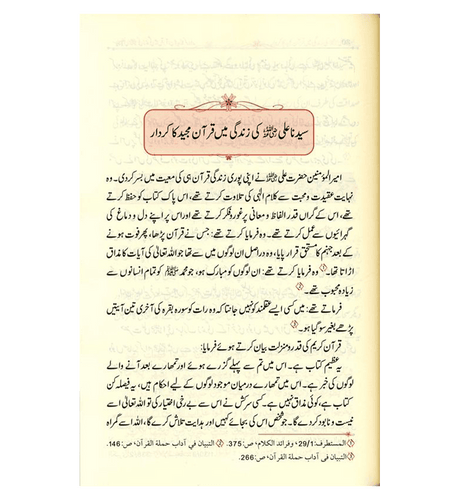 سیدنا علی رضی اللہ عنہ کی زندگی میں قرآن مجید کا کردار
امیر المؤمنین حضرت علی رضی اللہ عنہ نے اپنی پوری زندگی قرآن ہی کی معیت میں بسر کر دی۔ وہ
نہایت عقیدت و محبت سے کلام الٰہی کی تلاوت کرتے تھے، اس پاک کتاب کو حفظ کرتے
تھے، اس کے گراں قدر الفاظ و معانی پر غور و فکر کرتے تھے اور اس پر اپنے دل و دماغ کی
گہرائیوں سے عمل کرتے تھے۔ وہ فرمایا کرتے تھے: جس نے قرآن پڑھا، پھر فوت ہونے
کے بعد جہنم کا مستحق قرار پایا، وہ دراصل ان لوگوں میں سے تھا جو اللہ تعالیٰ کی آیات کا مذاق
اڑاتا تھا۔ وہ فرمایا کرتے تھے: ان لوگوں کو مبارک ہو، جو محمد ﷺ کو تمام انسانوں سے
زیادہ محبوب تھے۔
فرماتے تھے: میں کسی ایسے عقلمند کو نہیں جانتا کہ وہ رات کو سورہ بقرہ کی آخری تین آیتیں
پڑھے بغیر سو گیا ہو۔
قرآن کریم کی قدر و منزلت بیان کرتے ہوئے فرمایا:
یہ عظیم کتاب ہے۔ اس میں تم سے پہلے گزرے ہوئے اور تمھارے بعد آنے والے
لوگوں کی خبر ہے۔ اس میں تمھارے درمیان موجود لوگوں کے لیے احکام ہیں، یہ فیصلہ کن
کتاب ہے، کوئی مذاق نہیں ہے۔ کسی سرکش نے اس سے بے رخی اختیار کی تو اللہ تعالیٰ اسے
نیست و نابود کر دے گا۔ جو شخص اس کی بجائے کہیں اور ہدایت تلاش کرے گا، اللہ اسے گمراہ
المستطرف: 29/1، وفرائد الکلام، ص: 375. التبیان في آداب حملة القرآن، ص: 146.
التبیان في آداب حملة القرآن، ص: 266.